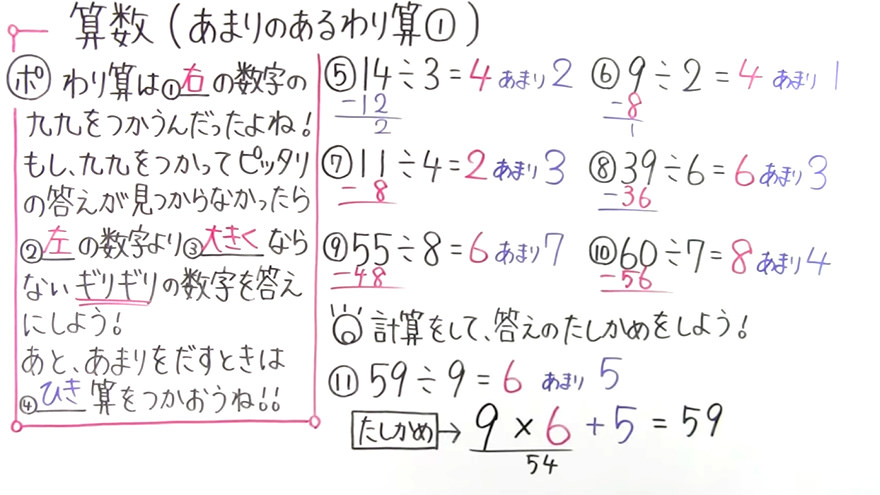 算数(あまりのあるわり算①)
ポ わり算は①右の数字の
九九をつかうんだったよね!
もし、九九をつかってピッタリ
の答えが見つからなかったら
②左の数字より③大きくなら
ないギリギリの数字を答え
にしよう!
あと、あまりをだすときは
④ひき算をつかおうね!!
⑤14÷3=4あまり2
-12
2
⑥9÷2=4あまり1
-8
1
⑦11÷4=2あまり3
-8
⑧39÷6=6あまり3
-36
⑨55÷8=6あまり7
-48
⑩60÷7=8あまり4
-56
計算をして、答えのたしかめをしよう!
⑪59÷9=6あまり5
たしかめ→9×6+5=59
54